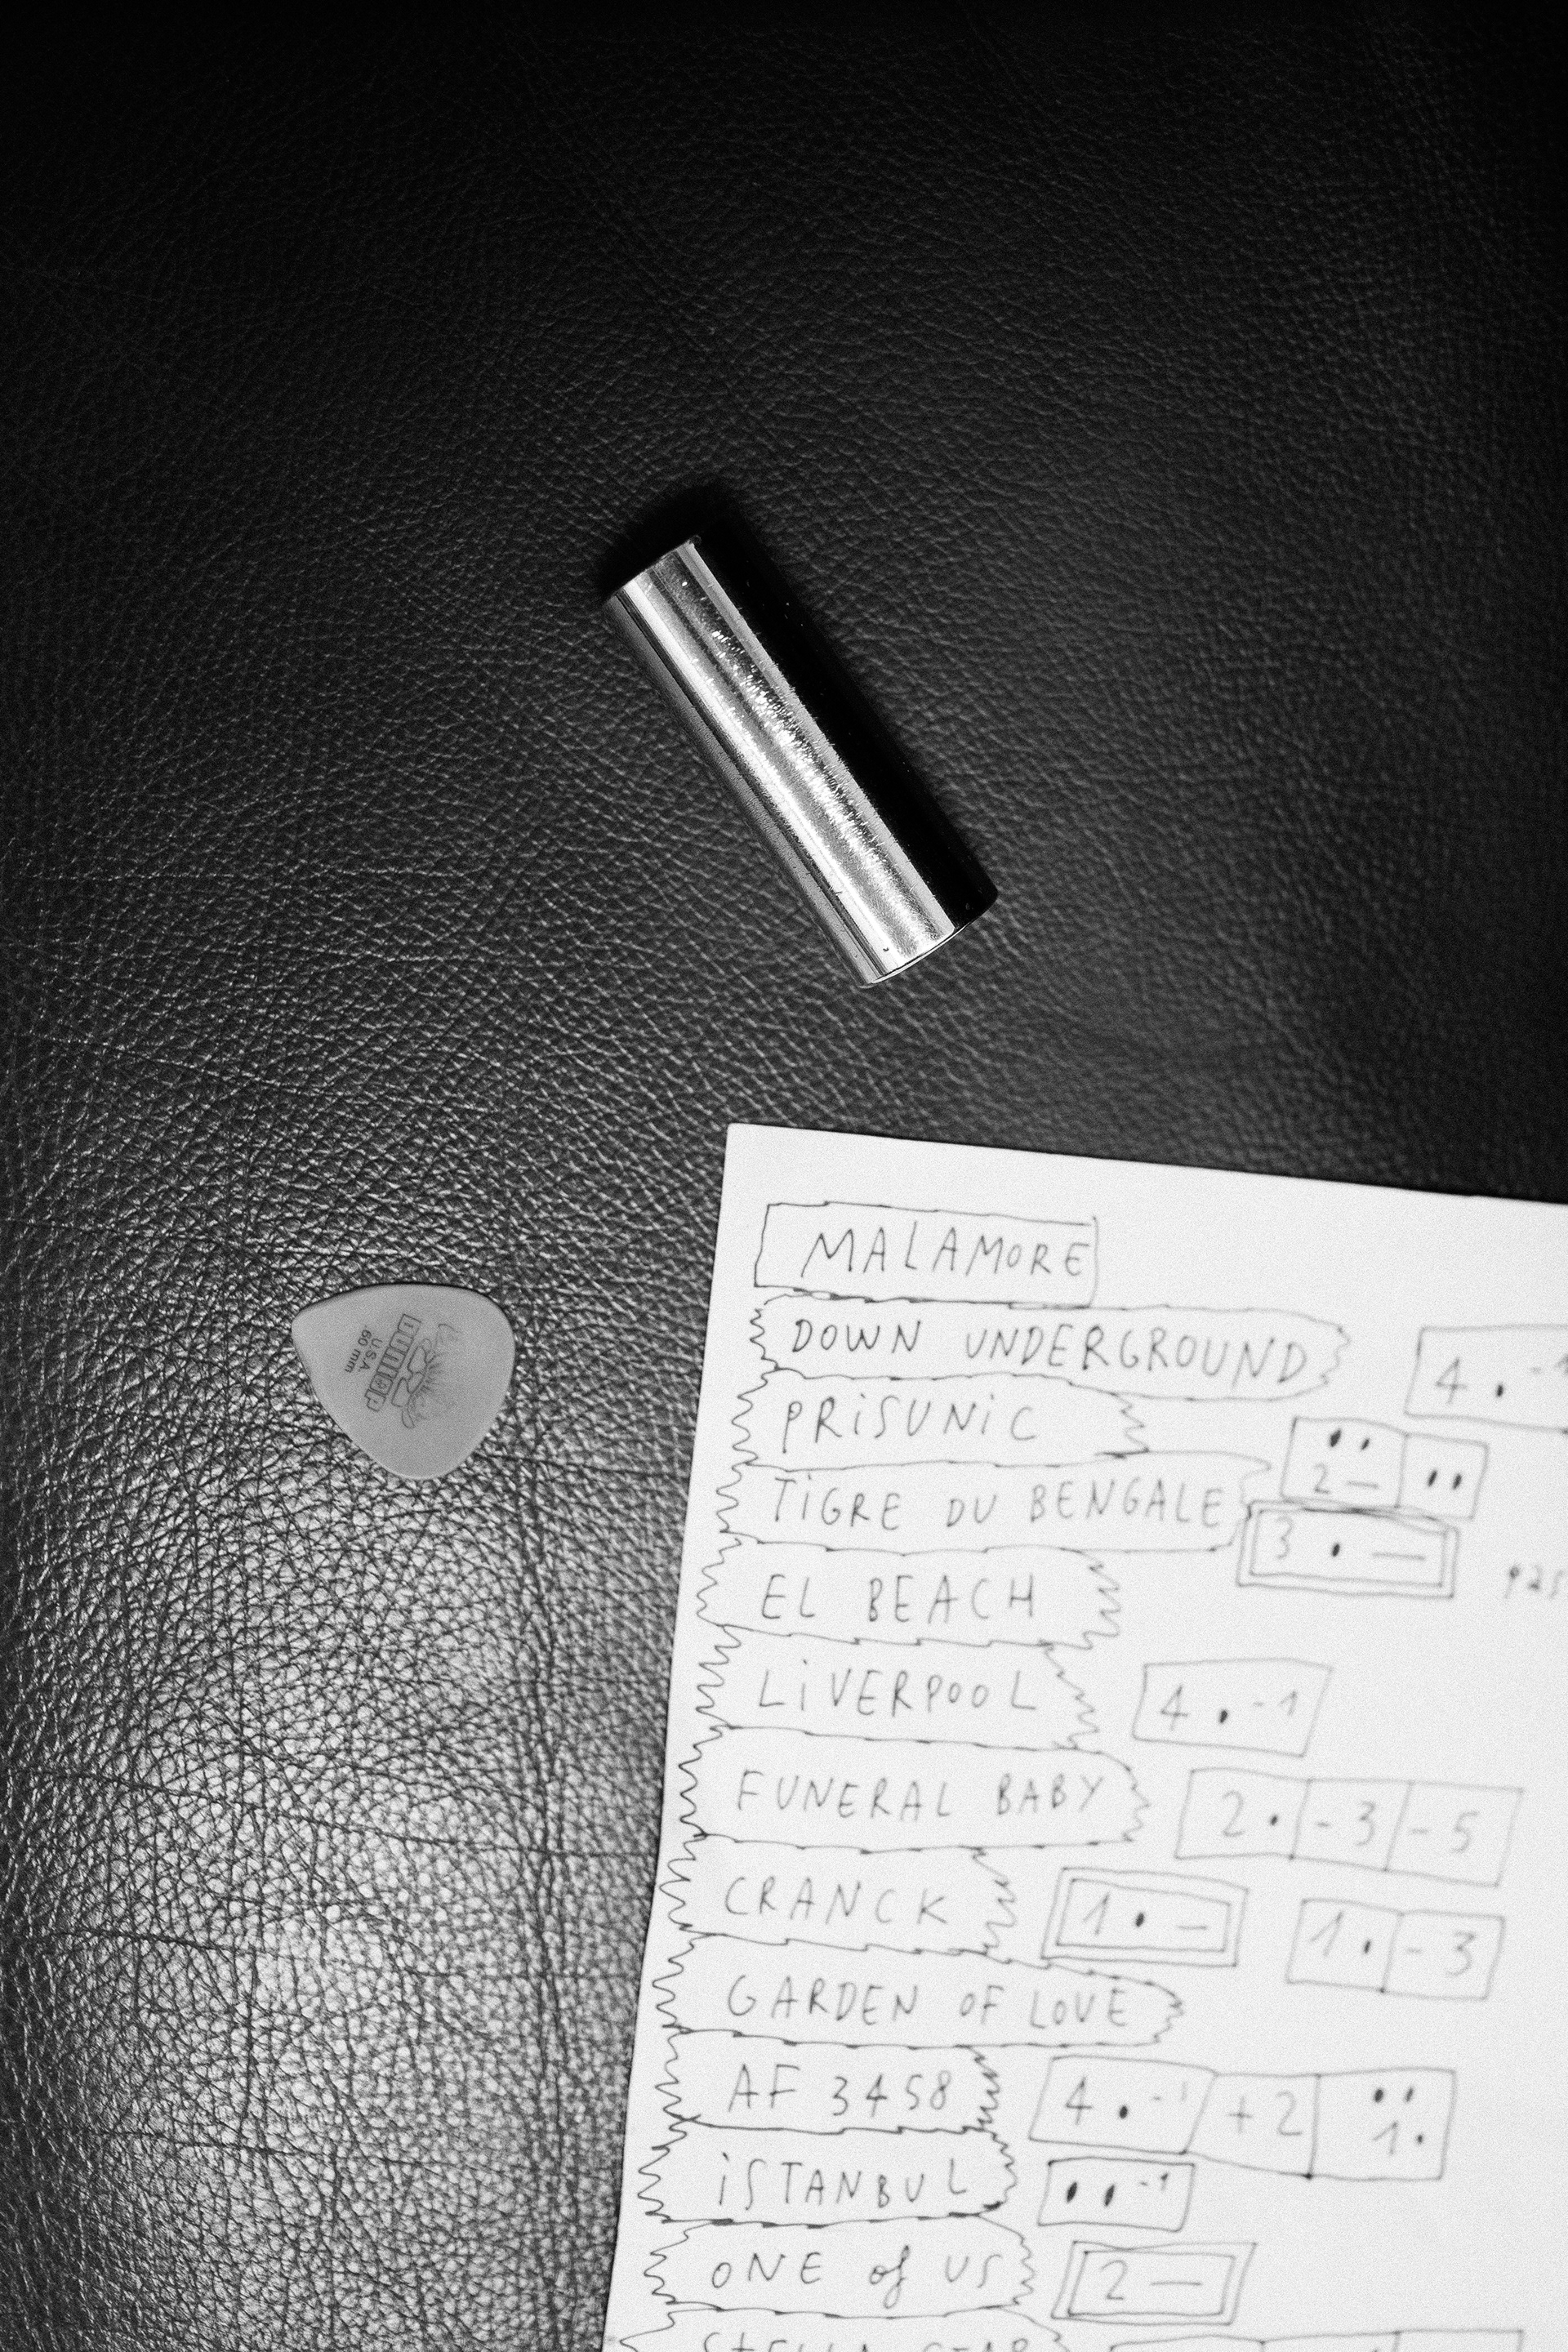 DUNLOP
U.S.A.
.60 mm
MALAMORE
DOWN UNDERGROUND 4 . -1
PRiSUNiC 2 —
TiGRE DU BENGALE 3 . —
EL BEACH
LiVERPOOL 4 . -1
FUNERAL BABY 2 . - 3 - 5
CRANCK 1 . — 1 . - 3
GARDEN OF LOVE
AF 3458 4 . -1 + 2 1 .
iSTANBUL -1
ONE of US 2 —